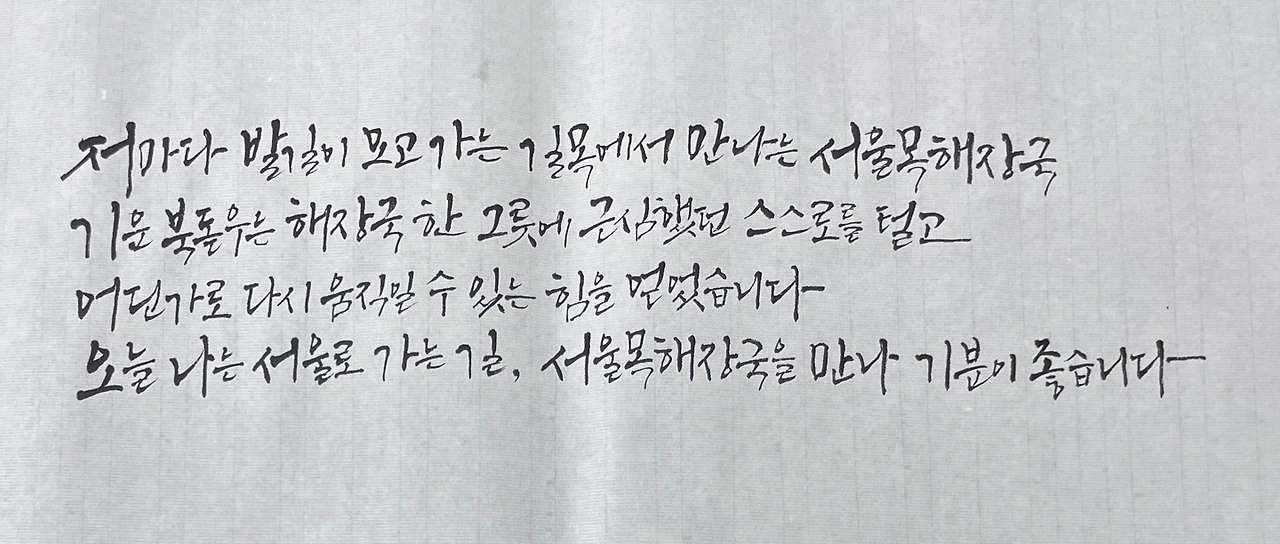 저마다 발길이 모고 가는 길목에서 만나는 서울목해장국
기운 북돋우는 해장국 한 그릇에 근심했던 스스로를 털고
어딘가로 다시 움직일 수 있는 힘을 얻었습니다
오늘 나는 서울로 가는 길, 서울목해장국을 만나 기분이 좋습니다